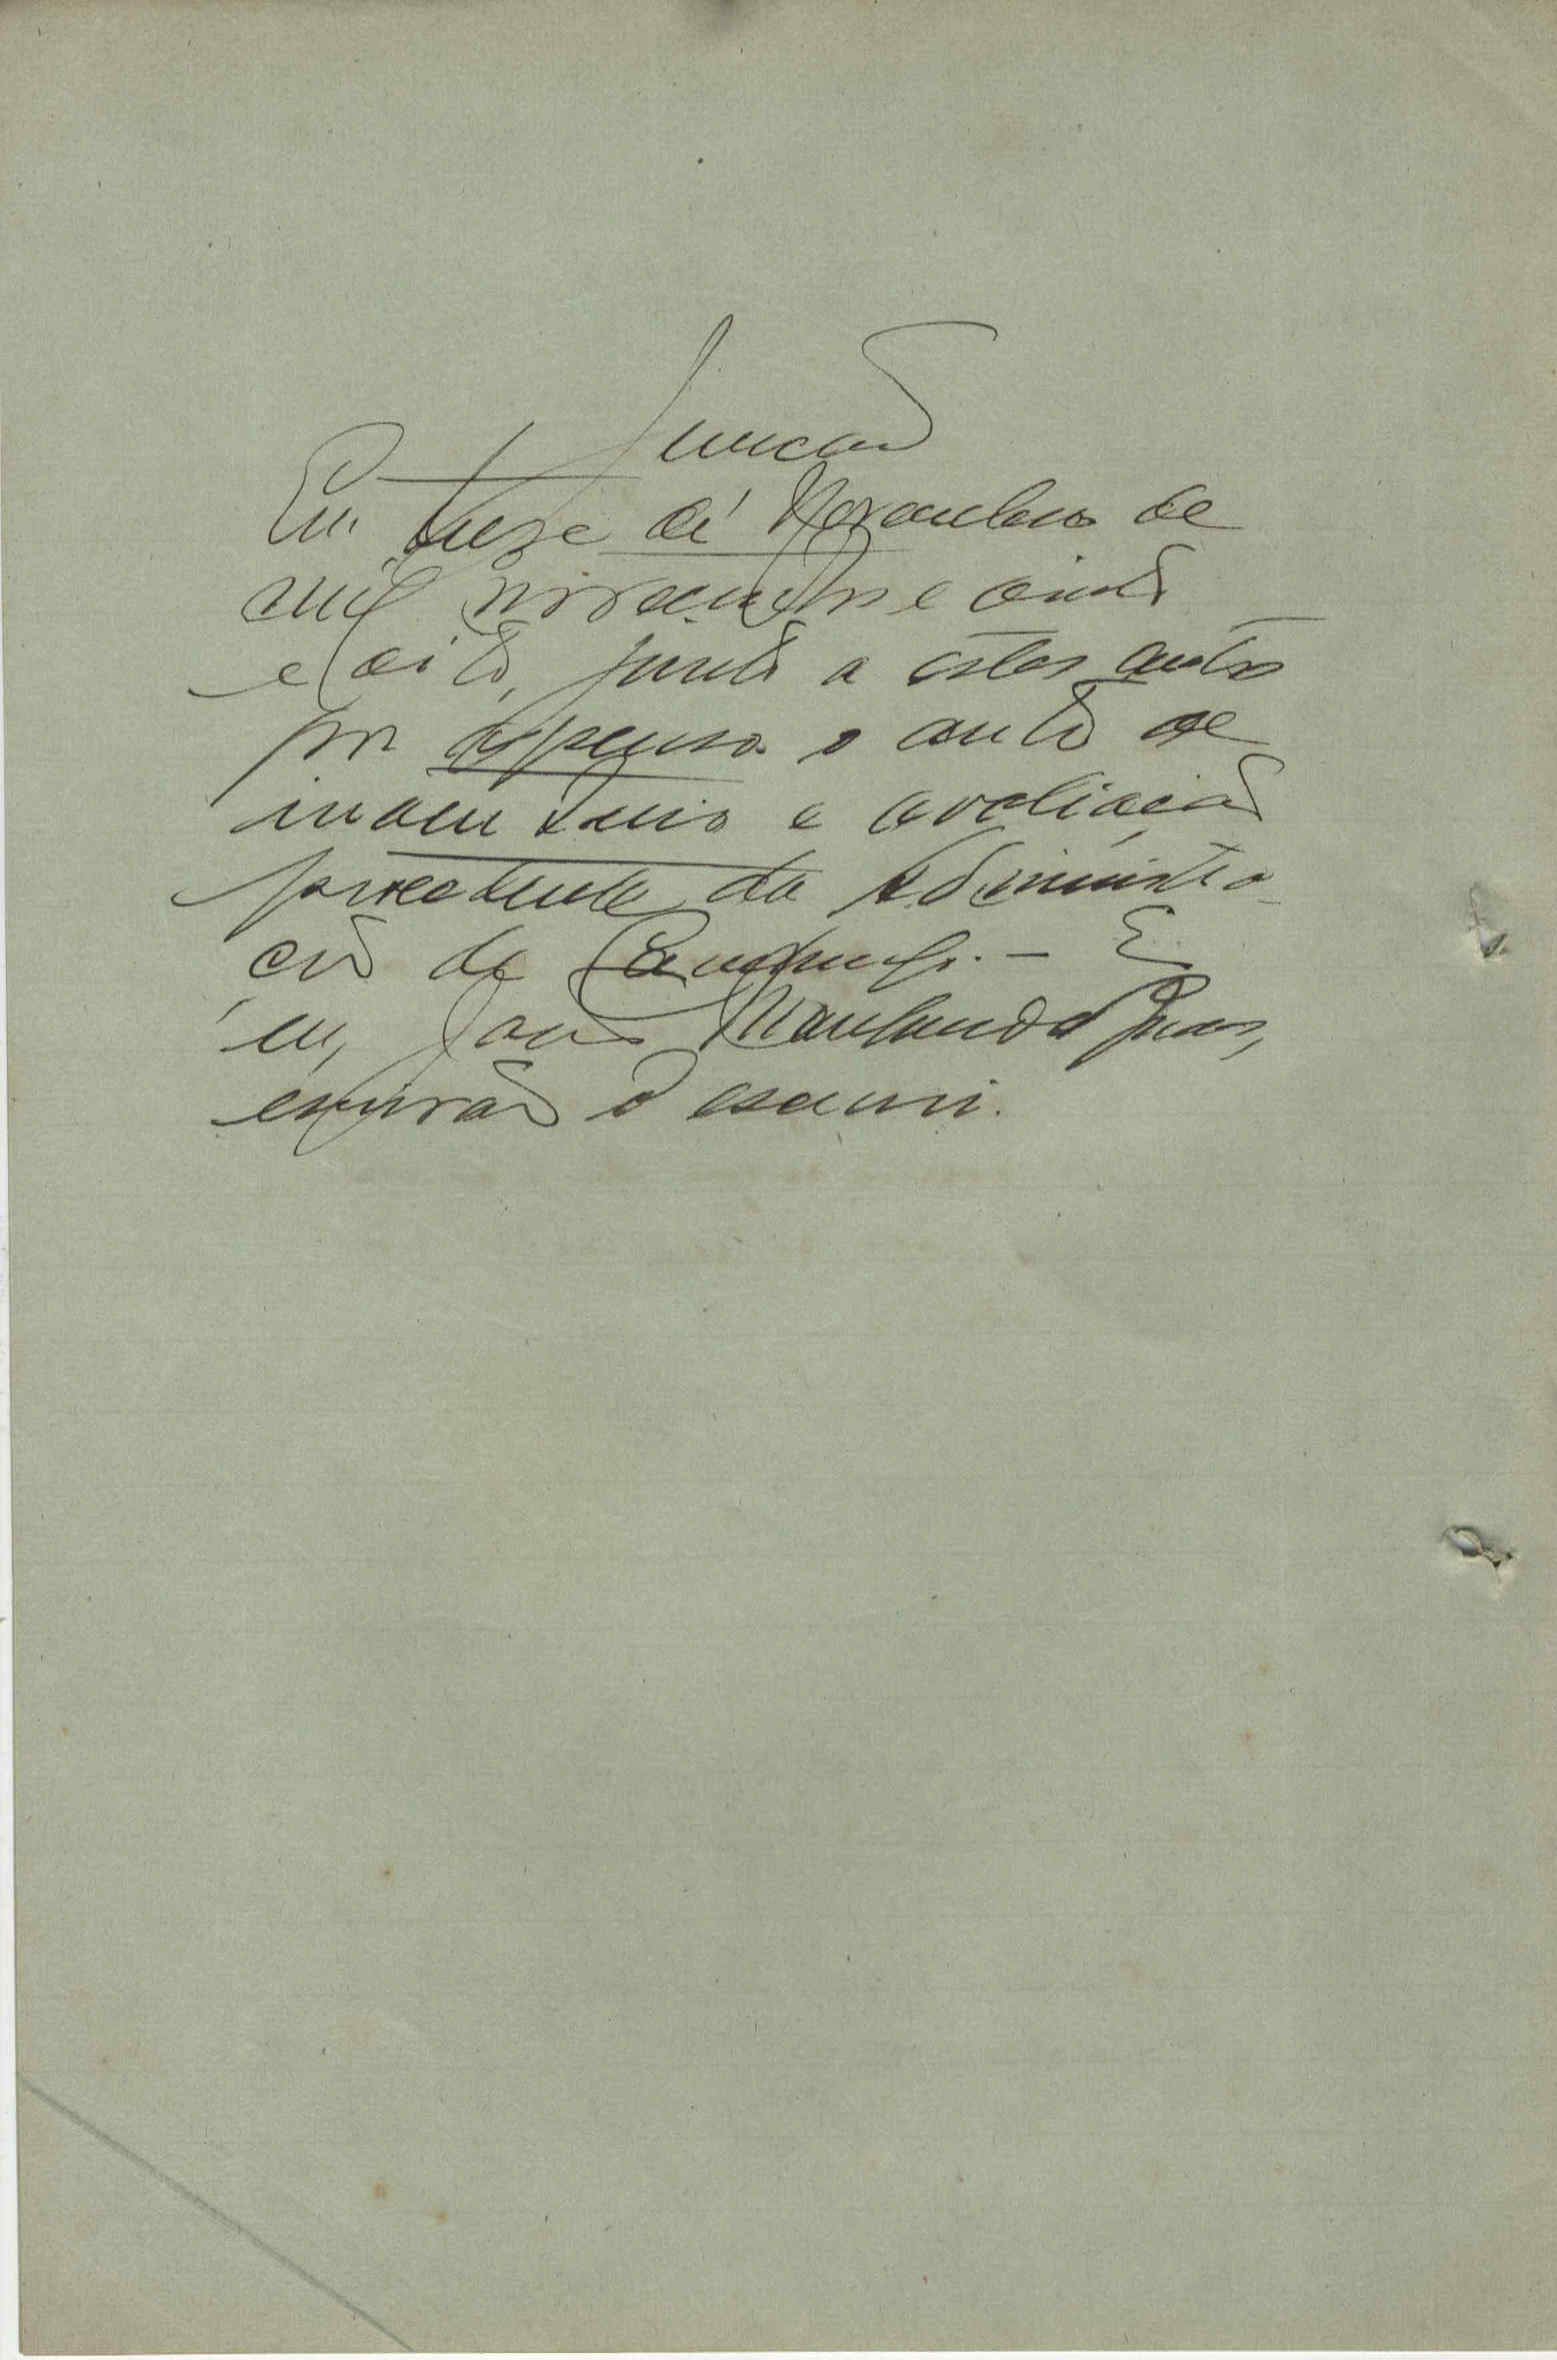 Juncão
Em treze de Novembro de
mil novecentos e vinte
e oito, junto a estes autos
por apenso o auto de
inventario e avaliação
procedente da Administra-
ção de
eu, João
escrivão o escrevi.